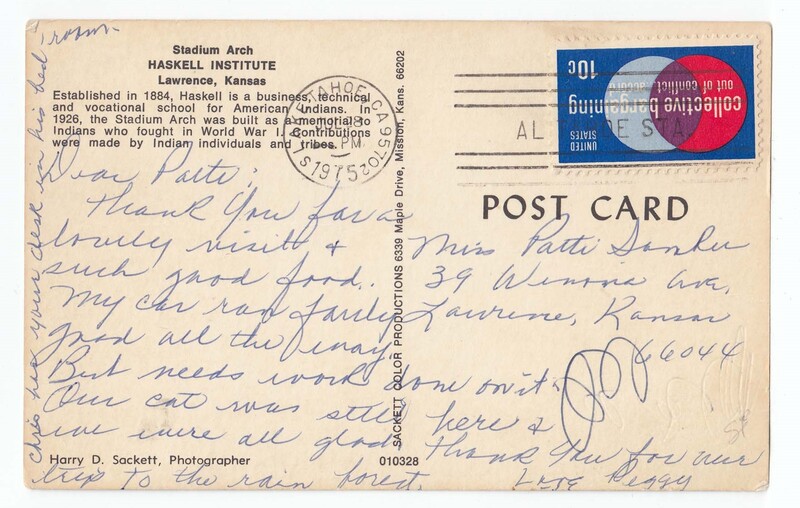 Stadium Arch
HASKELL INSTITUTE
Lawrence, Kansas
Established in 1884, Haskell is a business, technical
and vocational school for American Indians. In
1926, the Stadium Arch was built as a memorial to
Indians who fought in World War I. Contributions
were made by Indian individuals and tribes.
Dear Patti:
Thank you for a
lovely visit &
such good food.
My car ran fairly
good all the way.
But needs work done on it.
Our cat was still here &
we were all glad.
Thank You for our
trip to the rain forest.
Love Peggy
Chris has your desk in his bed
room.
Harry D. Sackett, Photographer
010328
SACKETT COLOR PRODUCTIONS 6339 Maple Drive, Mission, Kans. 66202
TAHOE, CA 95702
18
PM
1975
UNITED
STATES
10c
collective bargaining
out of conflict...accord
POST CARD
Miss Patti
39 Winona Ave.
Lawrence, Kansas
66044